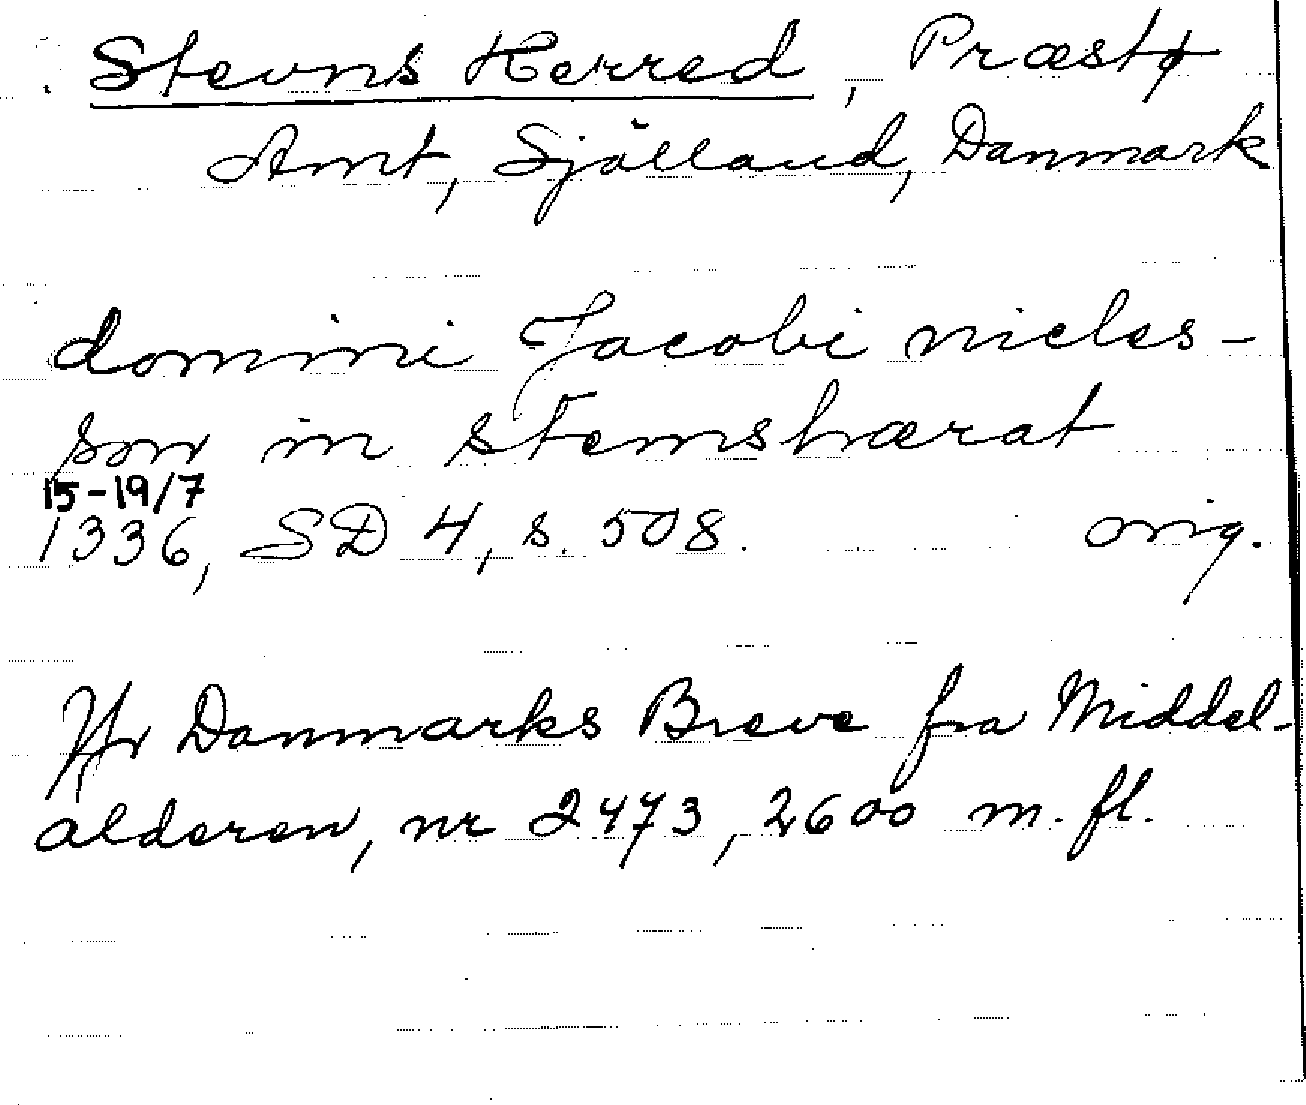 Stevns Herred, Præstø
Amt, Sjælland, Danmark
domini Jacobi nicles-
son in stemshærat
15-19/7
1336, SD 4, s. 508. orig.
Jfr Danmarks Breve fra Middel-
alderen, nr 2473, 2600 m. fl.